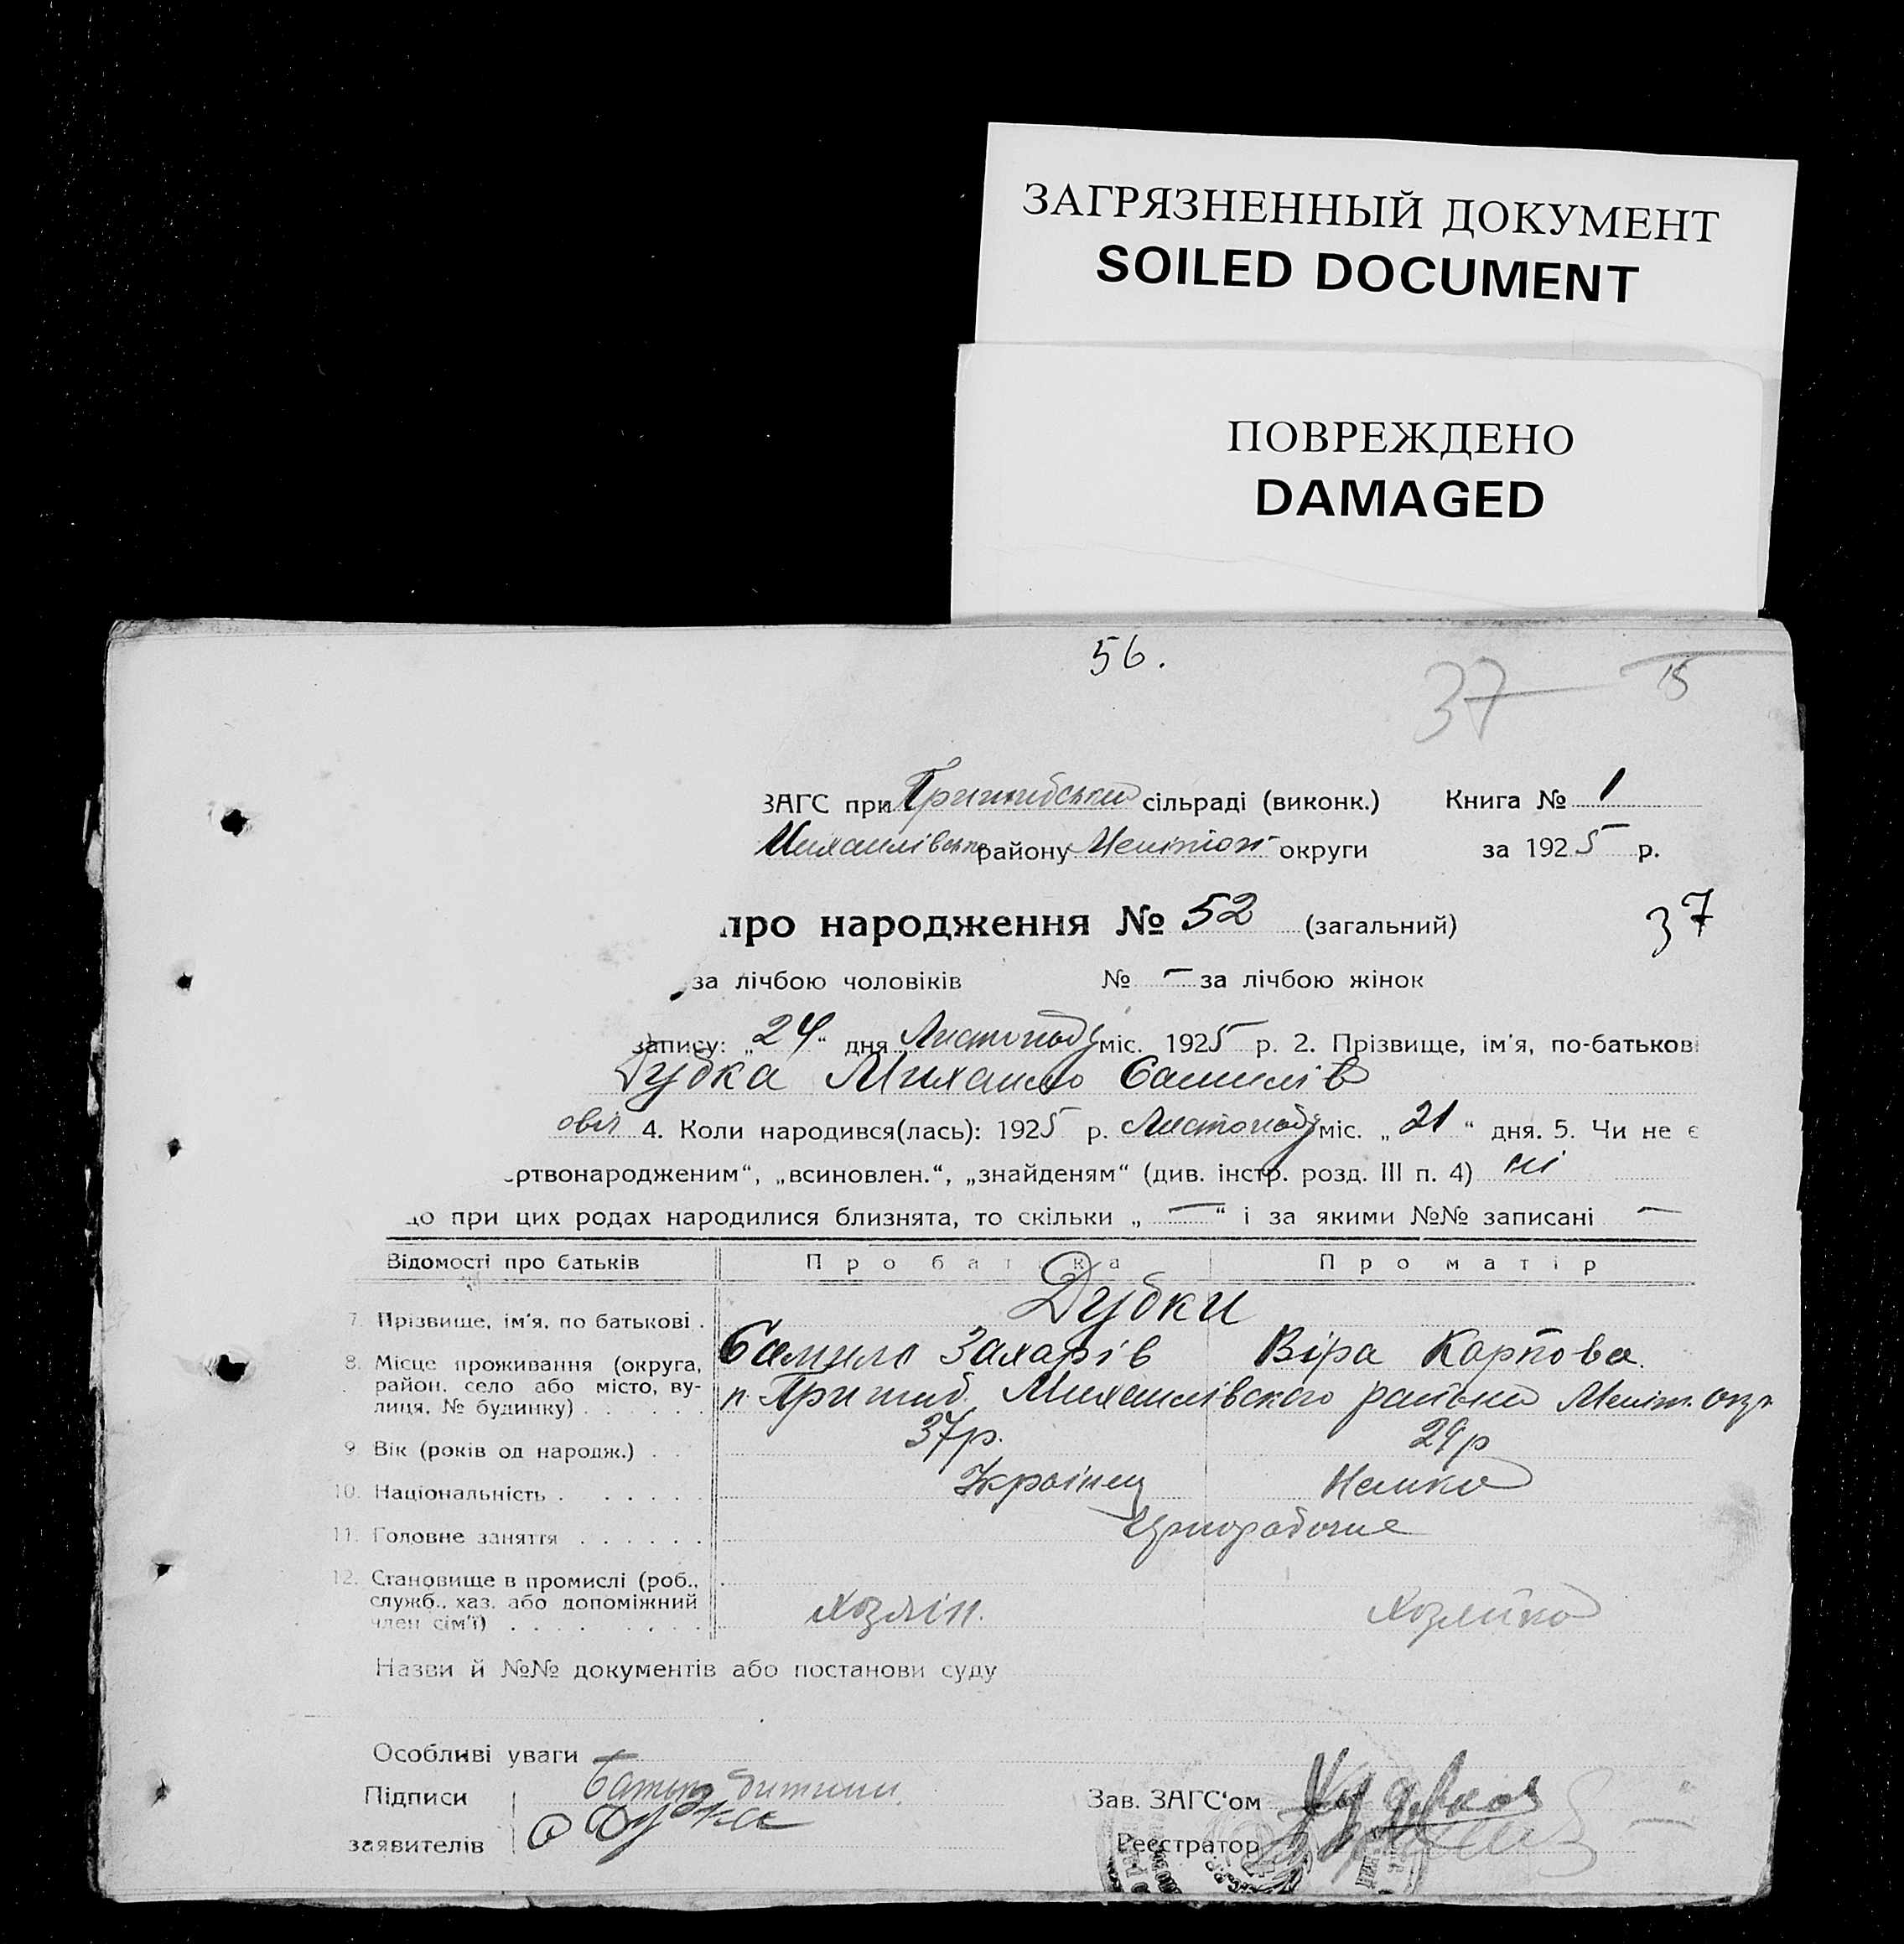 ЗАГРЯЗНЕННЫЙ ДОКУМЕНТ
SOILED DOCUMENT
ПОВРЕЖДЕНО
DAMAGED
56.
37 15
ЗАГС при сільраді (виконк.) Книга № 1
Михайлівськ району Мелітоп округи за 1925 р.
про народження № 52 (загальний)
37
за лічбою чоловіків № — за лічбою жінок
запису: „24“ дня Листопаду міс. 1925 р. 2. Прізвище, ім'я, по-батькові
Дубка Михайло Самилів
4. Коли народився(лась): 1925 р. Листопаду міс. „21“ дня. 5. Чи не є
ртвонародженим“, „всиновлен.“, „знайденям“ (див. інстр. розд. III п. 4) ні
що при цих родах народилися близнята, то скільки „—“ і за якими №№ записані —
Відомості про батьків Про батька Про матір
Дубки
7. Прізвище, ім'я, по батькові .
Самило Захарів Віра Карпова.
8. Місце проживання (округа,
район, село або місто, ву-
лиця, № будинку) . . . . . . п. Пришиб Михайлівского району Меліт. окр.
9. Вік (років од народж.) . . 37р. 29р
10. Національність . . . . . . Українец Немка
11. Головне заняття . . . . . . Чорнорабочие
12. Становище в промислі (роб.,
служб., хаз. або допоміжний
член сім'ї) . . . . . . . . Хозяін. Хозяйка
Назви й №№ документів або постанови суду
Особливі уваги
Підписи Батько дитини.
заявителів Дубка
Зав. ЗАГС'ом
Реєстратор